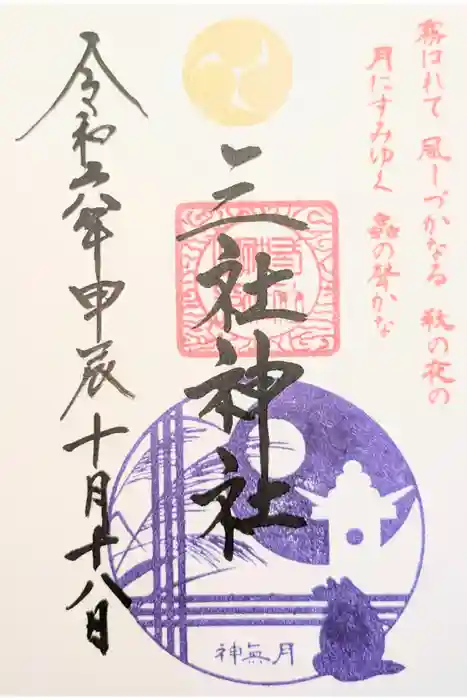 霧はれて 風しづかなる 秋の夜の
月にすみゆく 蟲の聲かな
三社神社
令和六年甲辰十月十八日
神無月